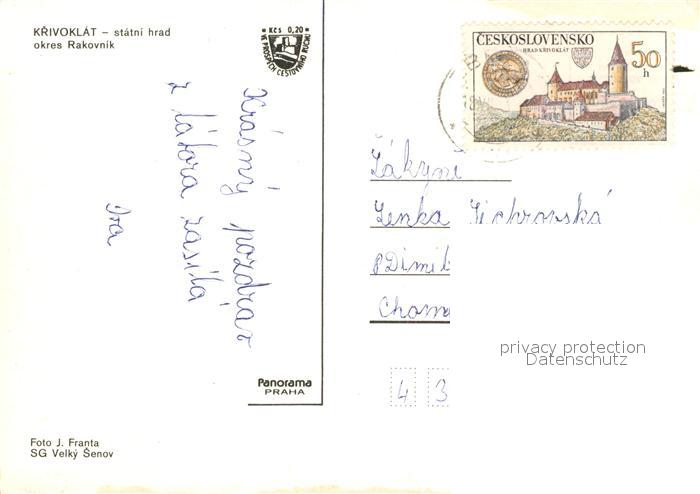 KŘIVOKLÁT – státní hrad
okres Rakovník
Kčs 0,20
VE PROSPĚCH CESTOVNÍHO RUCHU
ČESKOSLOVENSKO
HRAD KŘIVOKLÁT
50
h
Krásný pozdrav
z tábora zasílá
Iva
Žákyně
Lenka Vichrovská
Chom
4 3
privacy protection
Datenschutz
Panorama
PRAHA
Foto J. Franta
SG Velký Šenov